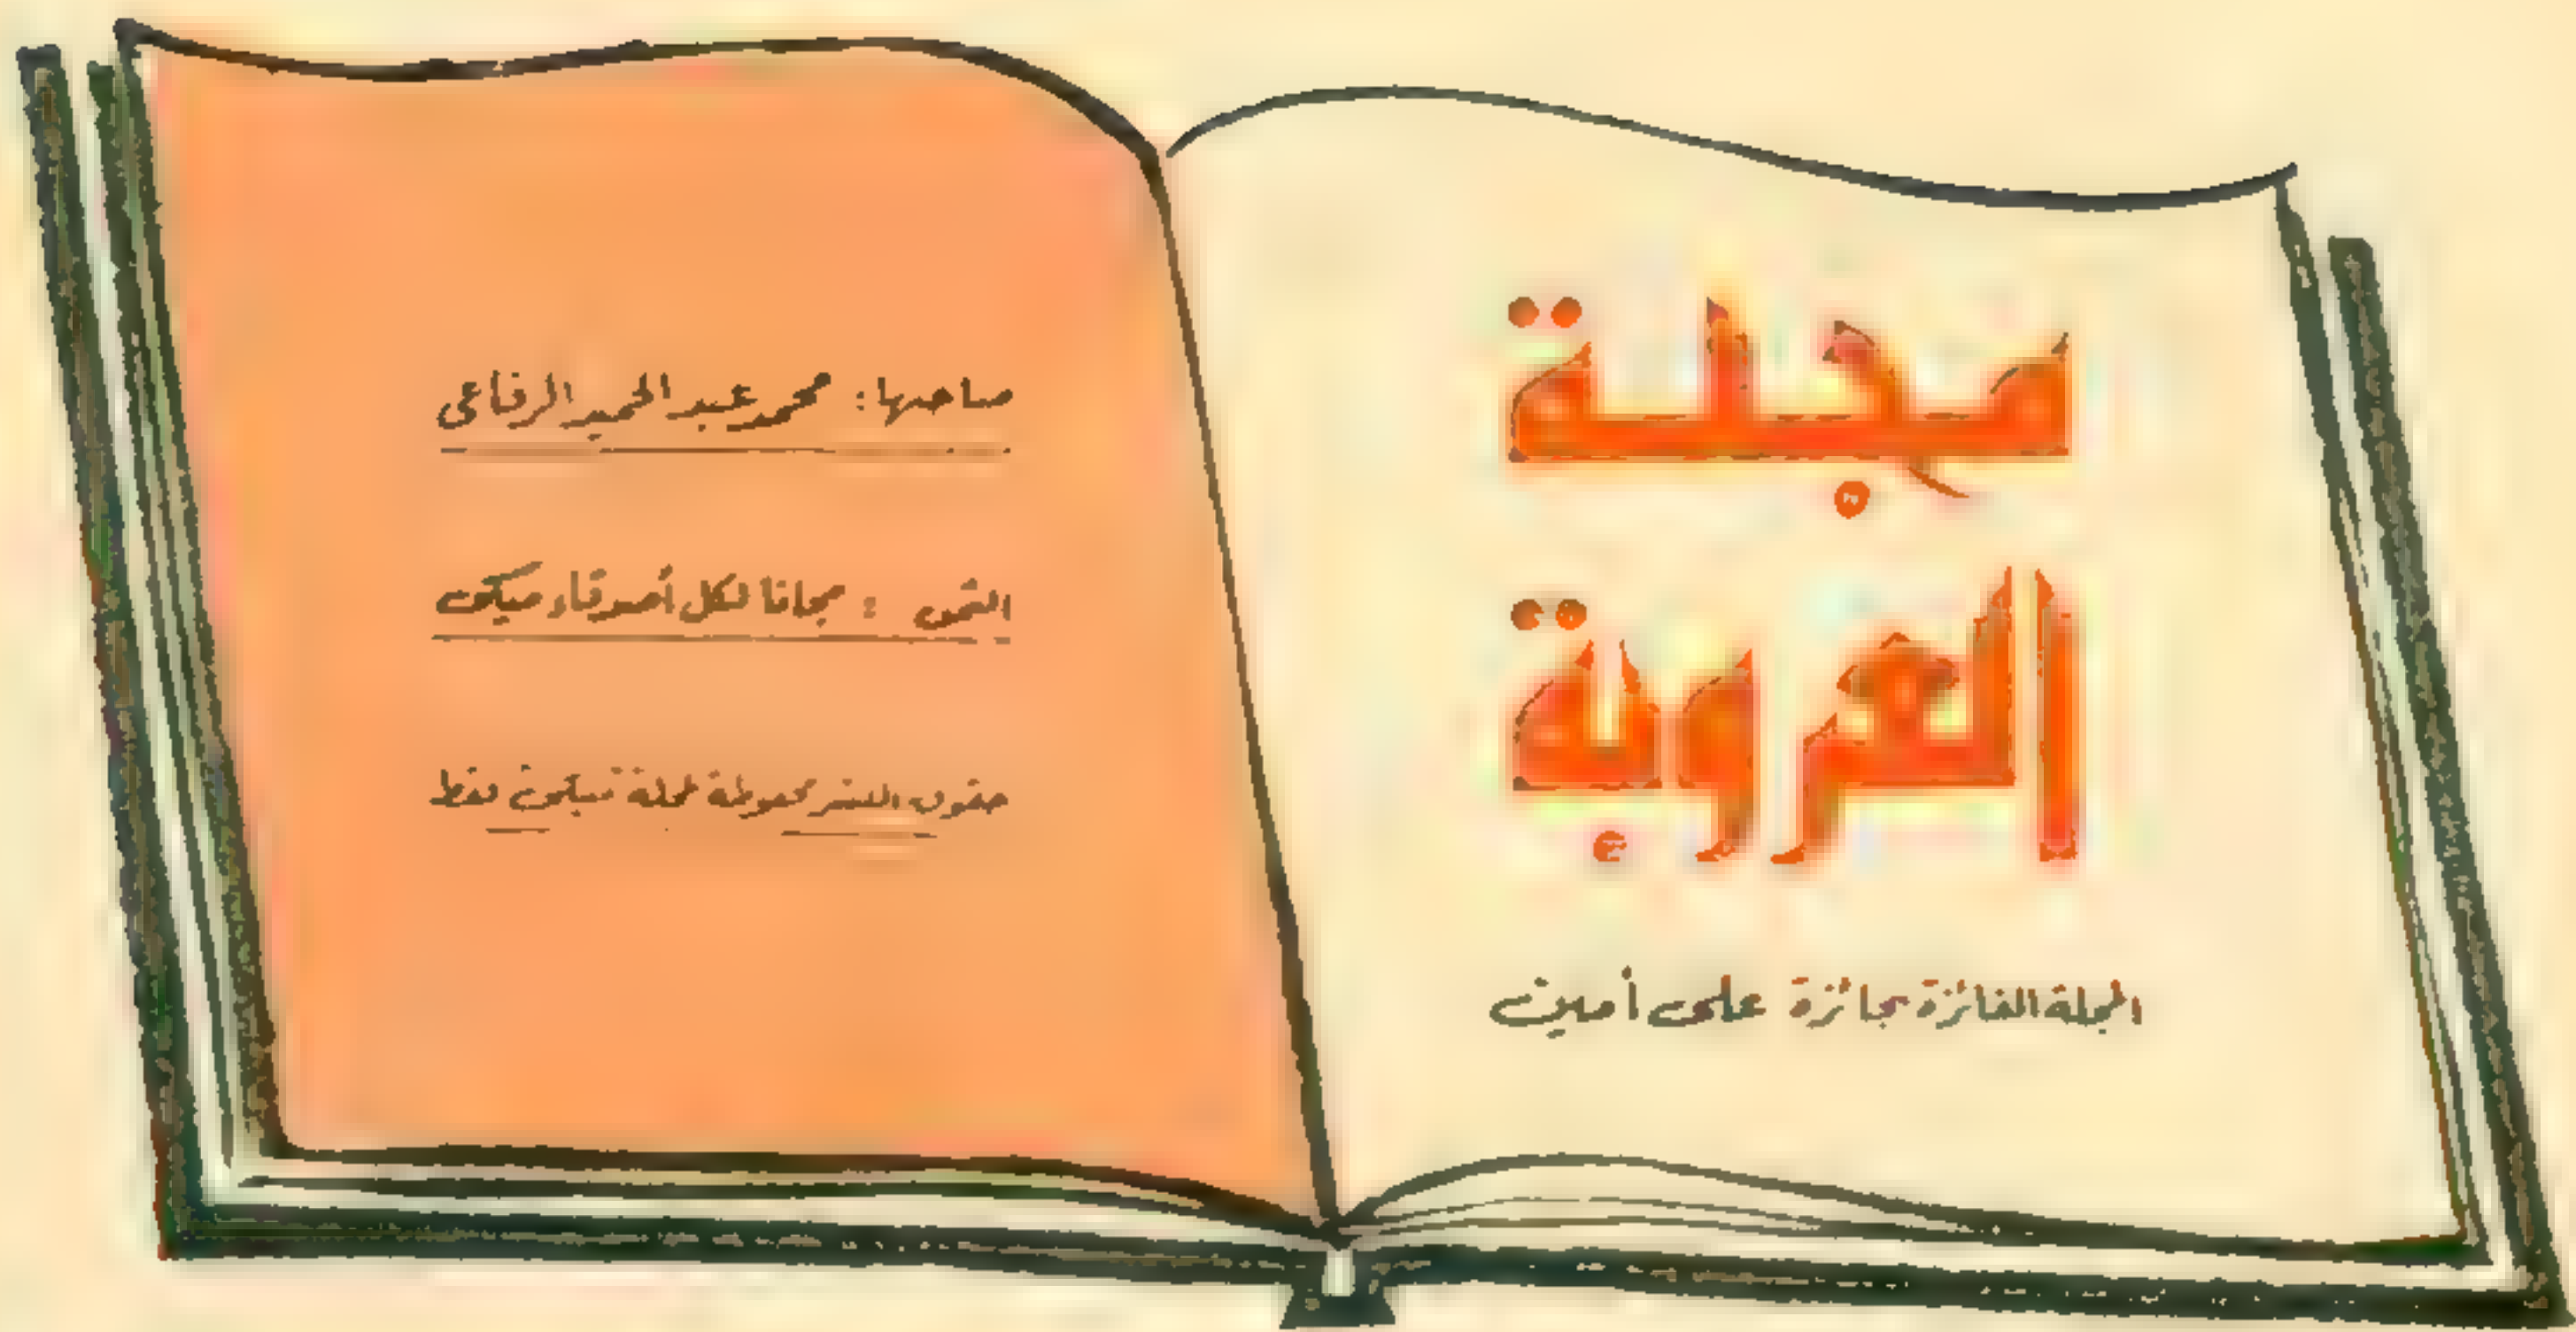 مجلة
العروبة
المجلة الفائزة بجائزة على أمين
صاحبها: محمد عبد الحميد الرفاعى
الثمن : مجانا لكل أصدقاء ميكى
حقوق النشر محفوظة لمجلة ميكى فقط